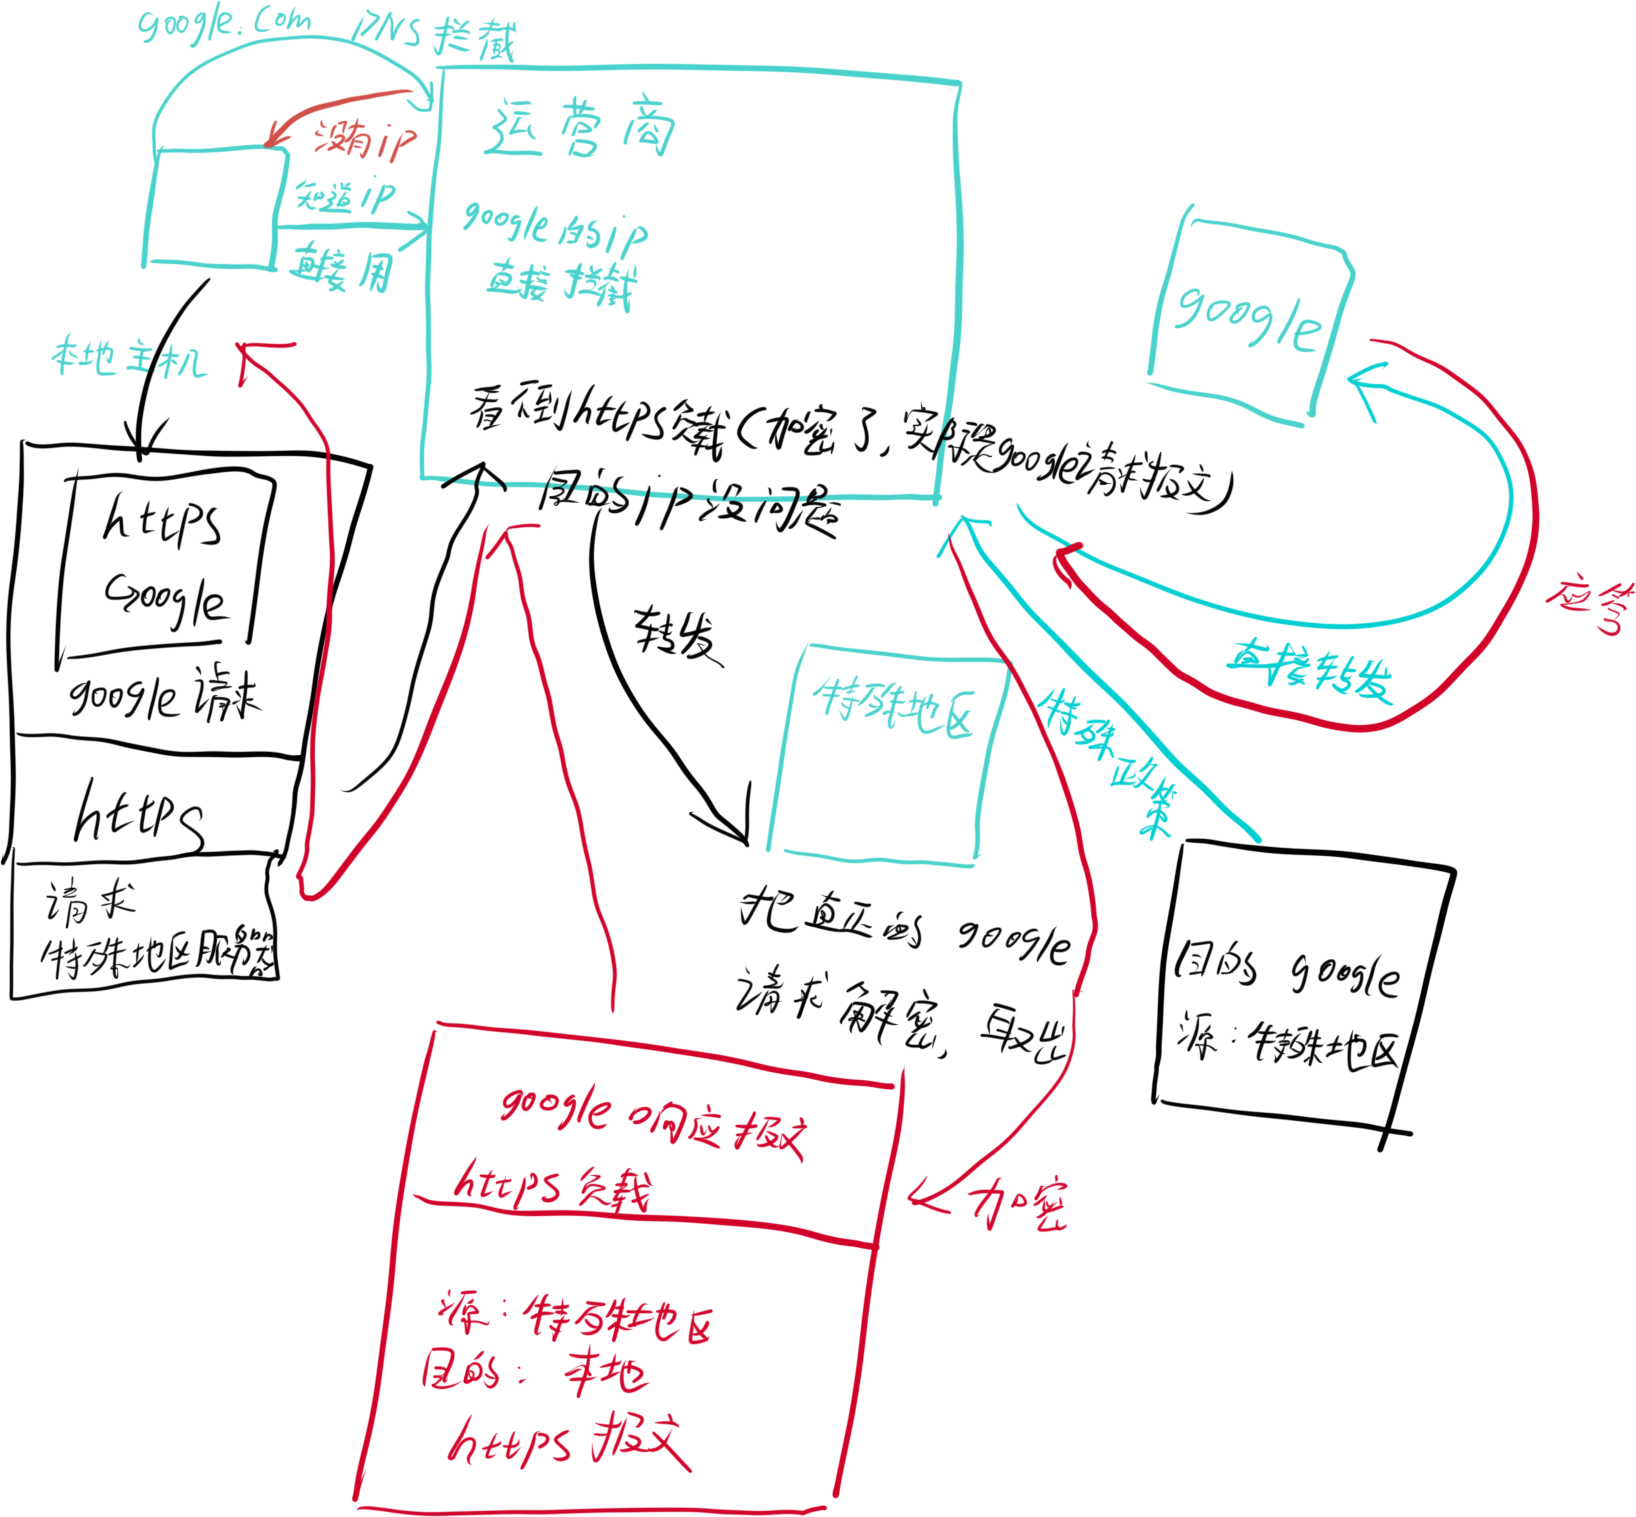 google.com DNS拦截
运营商
没有ip
知道ip
直接用
google的ip
直接拦截
google
本地主机
看不到https负载(加密了,实际是google请求报文)
目的ip没问题
https
Google
google请求
https
请求
特殊地区服务器
转发
特殊地区
应答
直接转发
特殊政策
把真正的 google
请求解密,取出
目的 google
源:特殊地区
google响应报文
https负载
加密
源:特殊地区
目的:本地
https报文